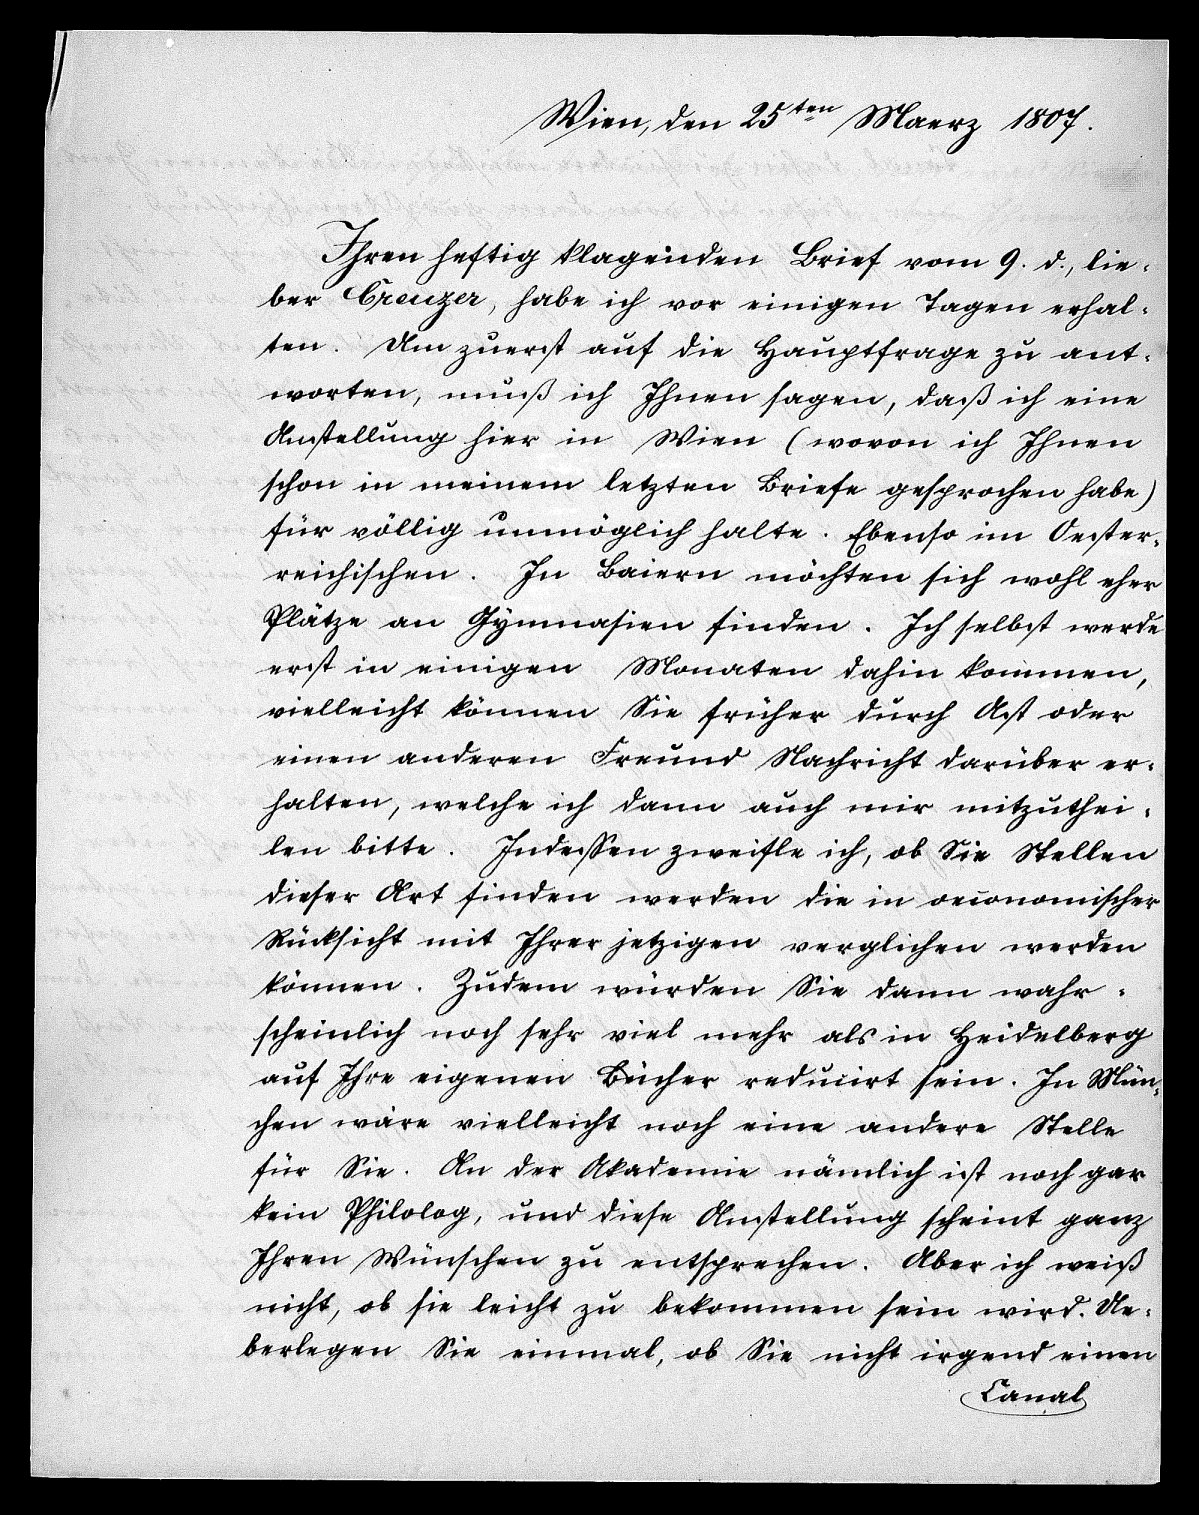 Wien, den 25ten Maerz 1807.
Ihren heftig klagenden Brief vom 9. d., lie-
ber Creuzer, habe ich vor einigen Tagen erhal-
ten. Um zuerst auf die Hauptfrage zu ant-
worten, muß ich Ihnen sagen, daß ich eine
Anstellung hier in Wien (wovon ich Ihnen
schon in meinem letzten Briefe gesprochen habe)
für völlig unmöglich halte. Ebenso im Oester-
reichischen. In Baiern möchten sich wohl eher
Plätze an Gymnasien finden. Ich selbst werde
erst in einigen Monaten dahin kommen,
vielleicht können Sie früher durch Ast oder
einen anderen Freund Nachricht darüber er-
halten, welche ich dann auch mir mitzuthei-
len bitte. Indessen zweifle ich, ob Sie Stellen
dieser Art finden werden die in oeconomischer
Rücksicht mit Ihrer jetzigen verglichen werden
können. Zudem würden Sie dann wahr-
scheinlich noch sehr viel mehr als in Heidelberg
auf Ihre eigenen Bücher reducirt sein. In Mün-
chen wäre vielleicht noch eine andere Stelle
für Sie. An der Akademie nämlich ist noch gar
kein Philolog, und diese Anstellung scheint ganz
Ihren Wünschen zu entsprechen. Aber ich weiß
nicht, ob sie leicht zu bekommen sein wird. Ue-
berlegen Sie einmal, ob Sie nicht irgend einen
Canal